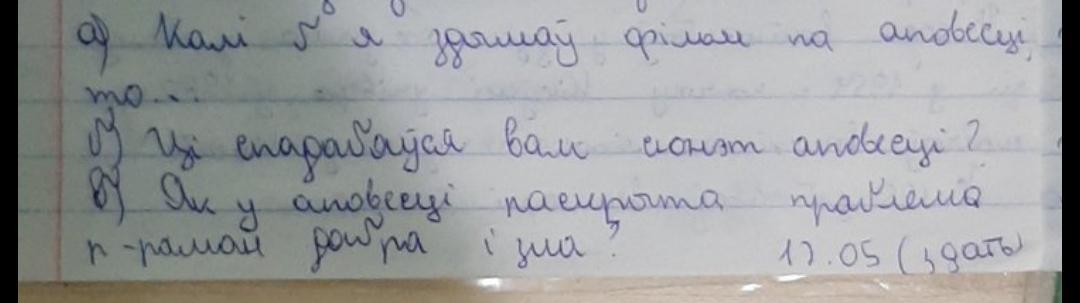 а) Калі б я здымаў фільм па аповесці,
то...
б) Ці спадабаўся вам сюжэт аповесці?
в) Як у аповесці раскрыта праблема
п-раман добра і зла? 17.05 (здать)